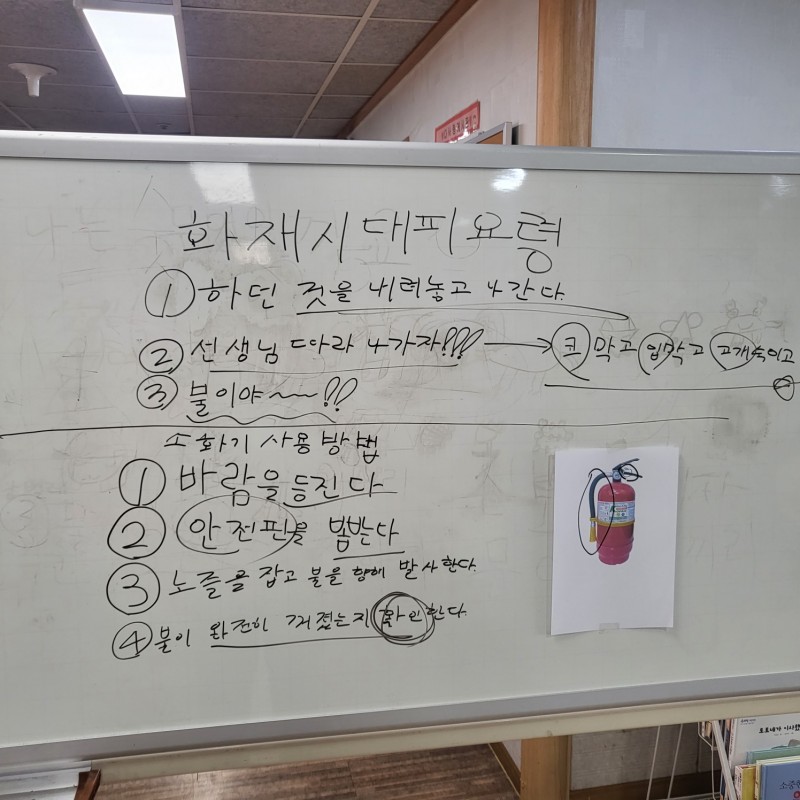 화재시대피요령
① 하던 것을 내려놓고 나간다.
② 선생님 따라 나가자!!! → 코 막고 입막고 고개숙이고
③ 불이야~~!!
소화기 사용 방법
① 바람을 등진다
② 안전핀을 뽑는다
③ 노즐을 잡고 불을 향해 발사한다.
④ 불이 완전히 꺼졌는지 확인한다.